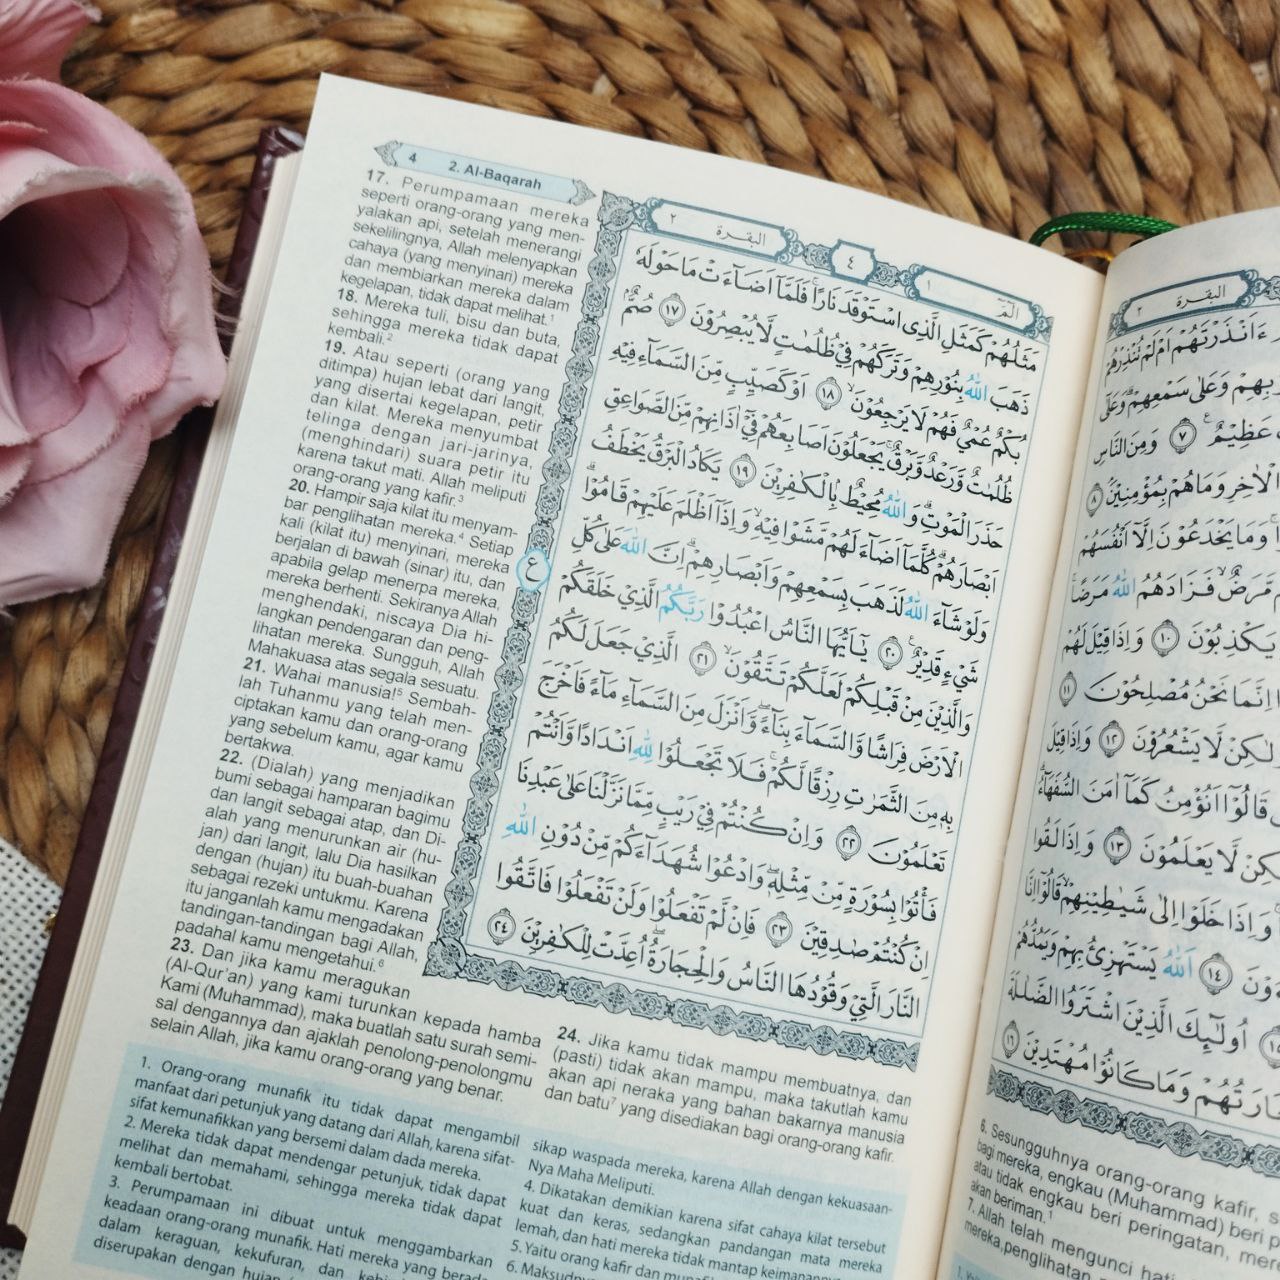 4 2. Al-Baqarah
17. Perumpamaan mereka
seperti orang-orang yang men-
yalakan api, setelah menerangi
sekelilingnya, Allah melenyapkan
cahaya (yang menyinari) mereka
dan membiarkan mereka dalam
kegelapan, tidak dapat melihat.¹
18. Mereka tuli, bisu dan buta,
sehingga mereka tidak dapat
kembali.²
19. Atau seperti (orang yang
ditimpa) hujan lebat dari langit,
yang disertai kegelapan, petir
dan kilat. Mereka menyumbat
telinga dengan jari-jarinya,
(menghindari) suara petir itu
karena takut mati. Allah meliputi
orang-orang yang kafir.³
20. Hampir saja kilat itu menyam-
bar penglihatan mereka.⁴ Setiap
kali (kilat itu) menyinari, mereka
berjalan di bawah (sinar) itu, dan
apabila gelap menerpa mereka,
mereka berhenti. Sekiranya Allah
menghendaki, niscaya Dia hi-
langkan pendengaran dan peng-
lihatan mereka. Sungguh, Allah
Mahakuasa atas segala sesuatu.
21. Wahai manusia!⁵ Sembah-
lah Tuhanmu yang telah men-
ciptakan kamu dan orang-orang
yang sebelum kamu, agar kamu
bertakwa.
22. (Dialah) yang menjadikan
bumi sebagai hamparan bagimu
dan langit sebagai atap, dan Di-
alah yang menurunkan air (hu-
jan) dari langit, lalu Dia hasilkan
dengan (hujan) itu buah-buahan
sebagai rezeki untukmu. Karena
itu janganlah kamu mengadakan
tandingan-tandingan bagi Allah,
padahal kamu mengetahui.⁶
23. Dan jika kamu meragukan
(Al-Qur'an) yang kami turunkan kepada hamba
Kami (Muhammad), maka buatlah satu surah semi-
sal dengannya dan ajaklah penolong-penolongmu
selain Allah, jika kamu orang-orang yang benar.
24. Jika kamu tidak mampu membuatnya, dan
(pasti) tidak akan mampu, maka takutlah kamu
akan api neraka yang bahan bakarnya manusia
dan batu⁷ yang disediakan bagi orang-orang kafir.
البقرة ٢
٤
الٓمّٓ ١
مَثَلُهُمْ كَمَثَلِ الَّذِى اسْتَوْقَدَ نَارًاۚ فَلَمَّآ اَضَاۤءَتْ مَا حَوْلَهٗ
ذَهَبَ اللّٰهُ بِنُوْرِهِمْ وَتَرَكَهُمْ فِيْ ظُلُمٰتٍ لَّا يُبْصِرُوْنَ ١٧ صُمٌّ ۢ
بُكْمٌ عُمْيٌ فَهُمْ لَا يَرْجِعُوْنَۙ ١٨ اَوْ كَصَيِّبٍ مِّنَ السَّمَاۤءِ فِيْهِ
ظُلُمٰتٌ وَّرَعْدٌ وَّبَرْقٌۚ يَجْعَلُوْنَ اَصَابِعَهُمْ فِيْٓ اٰذَانِهِمْ مِّنَ الصَّوَاعِقِ
حَذَرَ الْمَوْتِۗ وَاللّٰهُ مُحِيْطٌۢ بِالْكٰفِرِيْنَ ١٩ يَكَادُ الْبَرْقُ يَخْطَفُ
اَبْصَارَهُمْۗ كُلَّمَآ اَضَاۤءَ لَهُمْ مَّشَوْا فِيْهِۙ وَاِذَآ اَظْلَمَ عَلَيْهِمْ قَامُوْاۗ
وَلَوْ شَاۤءَ اللّٰهُ لَذَهَبَ بِسَمْعِهِمْ وَاَبْصَارِهِمْۗ اِنَّ اللّٰهَ عَلٰى كُلِّ
شَيْءٍ قَدِيْرٌ ٢٠ يٰٓاَيُّهَا النَّاسُ اعْبُدُوْا رَبَّكُمُ الَّذِيْ خَلَقَكُمْ
وَالَّذِيْنَ مِنْ قَبْلِكُمْ لَعَلَّكُمْ تَتَّقُوْنَۙ ٢١ الَّذِيْ جَعَلَ لَكُمُ
الْاَرْضَ فِرَاشًا وَّالسَّمَاۤءَ بِنَاۤءًۖ وَّاَنْزَلَ مِنَ السَّمَاۤءِ مَاۤءً فَاَخْرَجَ
بِهٖ مِنَ الثَّمَرٰتِ رِزْقًا لَّكُمْۚ فَلَا تَجْعَلُوْا لِلّٰهِ اَنْدَادًا وَّاَنْتُمْ
تَعْلَمُوْنَ ٢٢ وَاِنْ كُنْتُمْ فِيْ رَيْبٍ مِّمَّا نَزَّلْنَا عَلٰى عَبْدِنَا
فَأْتُوْا بِسُوْرَةٍ مِّنْ مِّثْلِهٖۖ وَادْعُوْا شُهَدَاۤءَكُمْ مِّنْ دُوْنِ اللّٰهِ
اِنْ كُنْتُمْ صٰدِقِيْنَ ٢٣ فَاِنْ لَّمْ تَفْعَلُوْا وَلَنْ تَفْعَلُوْا فَاتَّقُوا
النَّارَ الَّتِيْ وَقُوْدُهَا النَّاسُ وَالْحِجَارَةُۖ اُعِدَّتْ لِلْكٰفِرِيْنَ ٢٤
ع
1. Orang-orang munafik itu tidak dapat mengambil
manfaat dari petunjuk yang datang dari Allah, karena sifat-
sifat kemunafikkan yang bersemi dalam dada mereka.
2. Mereka tidak dapat mendengar petunjuk, tidak dapat
melihat dan memahami, sehingga mereka tidak dapat
kembali bertobat.
3. Perumpamaan ini dibuat untuk menggambarkan
keadaan orang-orang munafik. Hati mereka yang berada
dalam keraguan, kekufuran, dan
diserupakan dengan hujan
sikap waspada mereka, karena Allah dengan kekuasaan-
Nya Maha Meliputi.
4. Dikatakan demikian karena sifat cahaya kilat tersebut
kuat dan keras, sedangkan pandangan mata mereka
lemah, dan hati mereka tidak mantap keimanannya
5. Yaitu orang kafir dan
6.
البقرة ٢
ءَاَنْذَرْتَهُمْ اَمْ لَمْ تُنْذِرْهُمْ
وَعَلٰى سَمْعِهِمْۗ وَعَلٰٓى
عَظِيْمٌ ٧ وَمِنَ النَّاسِ
الْاٰخِرِ وَمَا هُمْ بِمُؤْمِنِيْنَۘ ٨
وَمَا يَخْدَعُوْنَ اِلَّآ اَنْفُسَهُمْ
مَّرَضٌۙ فَزَادَهُمُ اللّٰهُ مَرَضًاۚ
يَكْذِبُوْنَ ١٠ وَاِذَا قِيْلَ لَهُمْ
اِنَّمَا نَحْنُ مُصْلِحُوْنَ ١١
لٰكِنْ لَّا يَشْعُرُوْنَ ١٢ وَاِذَا قِيْلَ
قَالُوْٓا اَنُؤْمِنُ كَمَآ اٰمَنَ السُّفَهَاۤءُۗ
لٰكِنْ لَّا يَعْلَمُوْنَ ١٣ وَاِذَا لَقُوا
وَاِذَا خَلَوْا اِلٰى شَيٰطِيْنِهِمْۙ قَالُوْٓا اِنَّا
١٤ اَللّٰهُ يَسْتَهْزِئُ بِهِمْ وَيَمُدُّهُمْ
١٥ اُولٰۤىِٕكَ الَّذِيْنَ اشْتَرَوُا الضَّلٰلَةَ
وَمَا كَانُوْا مُهْتَدِيْنَ ١٦
6. Sesungguhnya orang-orang kafir,
bagi mereka, engkau (Muhammad) beri
atau tidak engkau beri peringatan,
akan beriman.¹
7. Allah telah mengunci hati
mereka, penglihatan